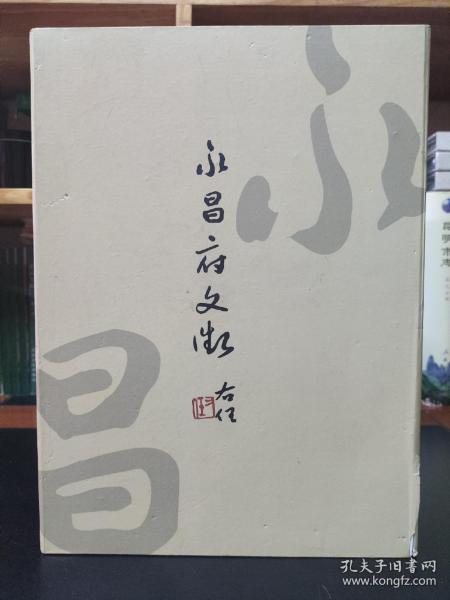 永昌府文徵
右任
永
昌
昆明市志
孔夫子旧书网
www.kongfz.com